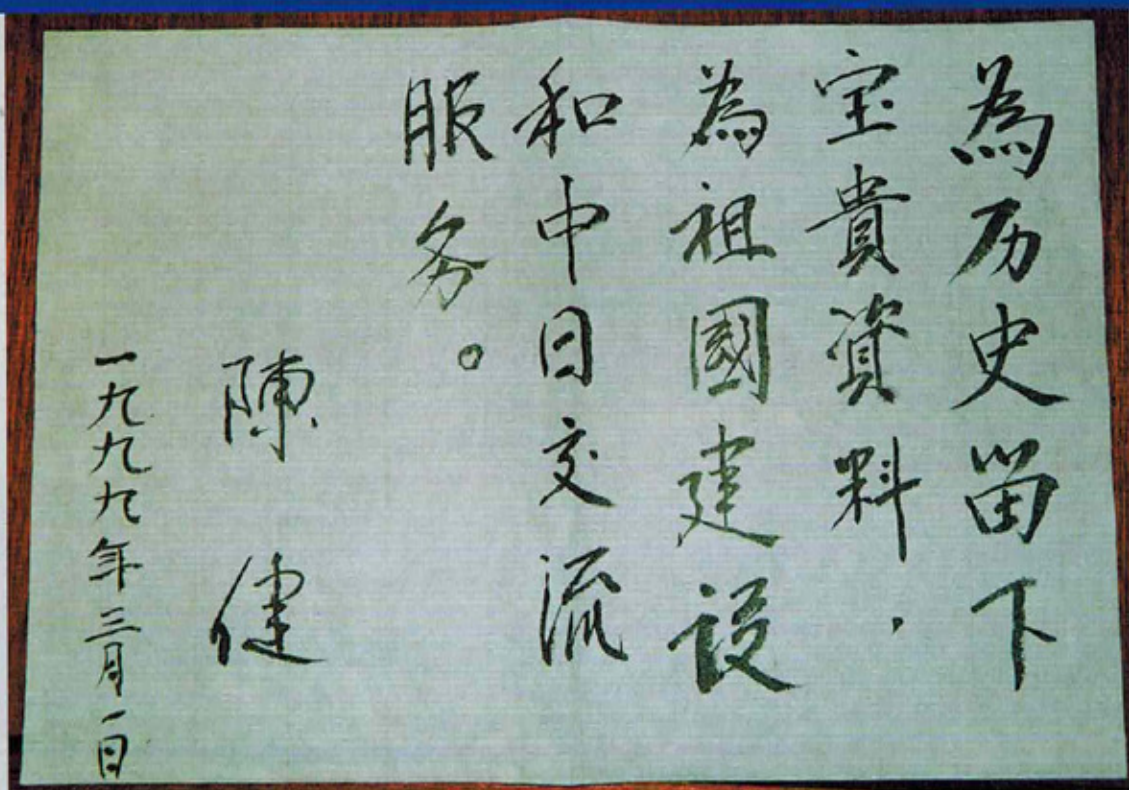 為历史留下
宝貴資料，
為祖國建设
和中日交流
服务。
陳健
一九九九年三月一日